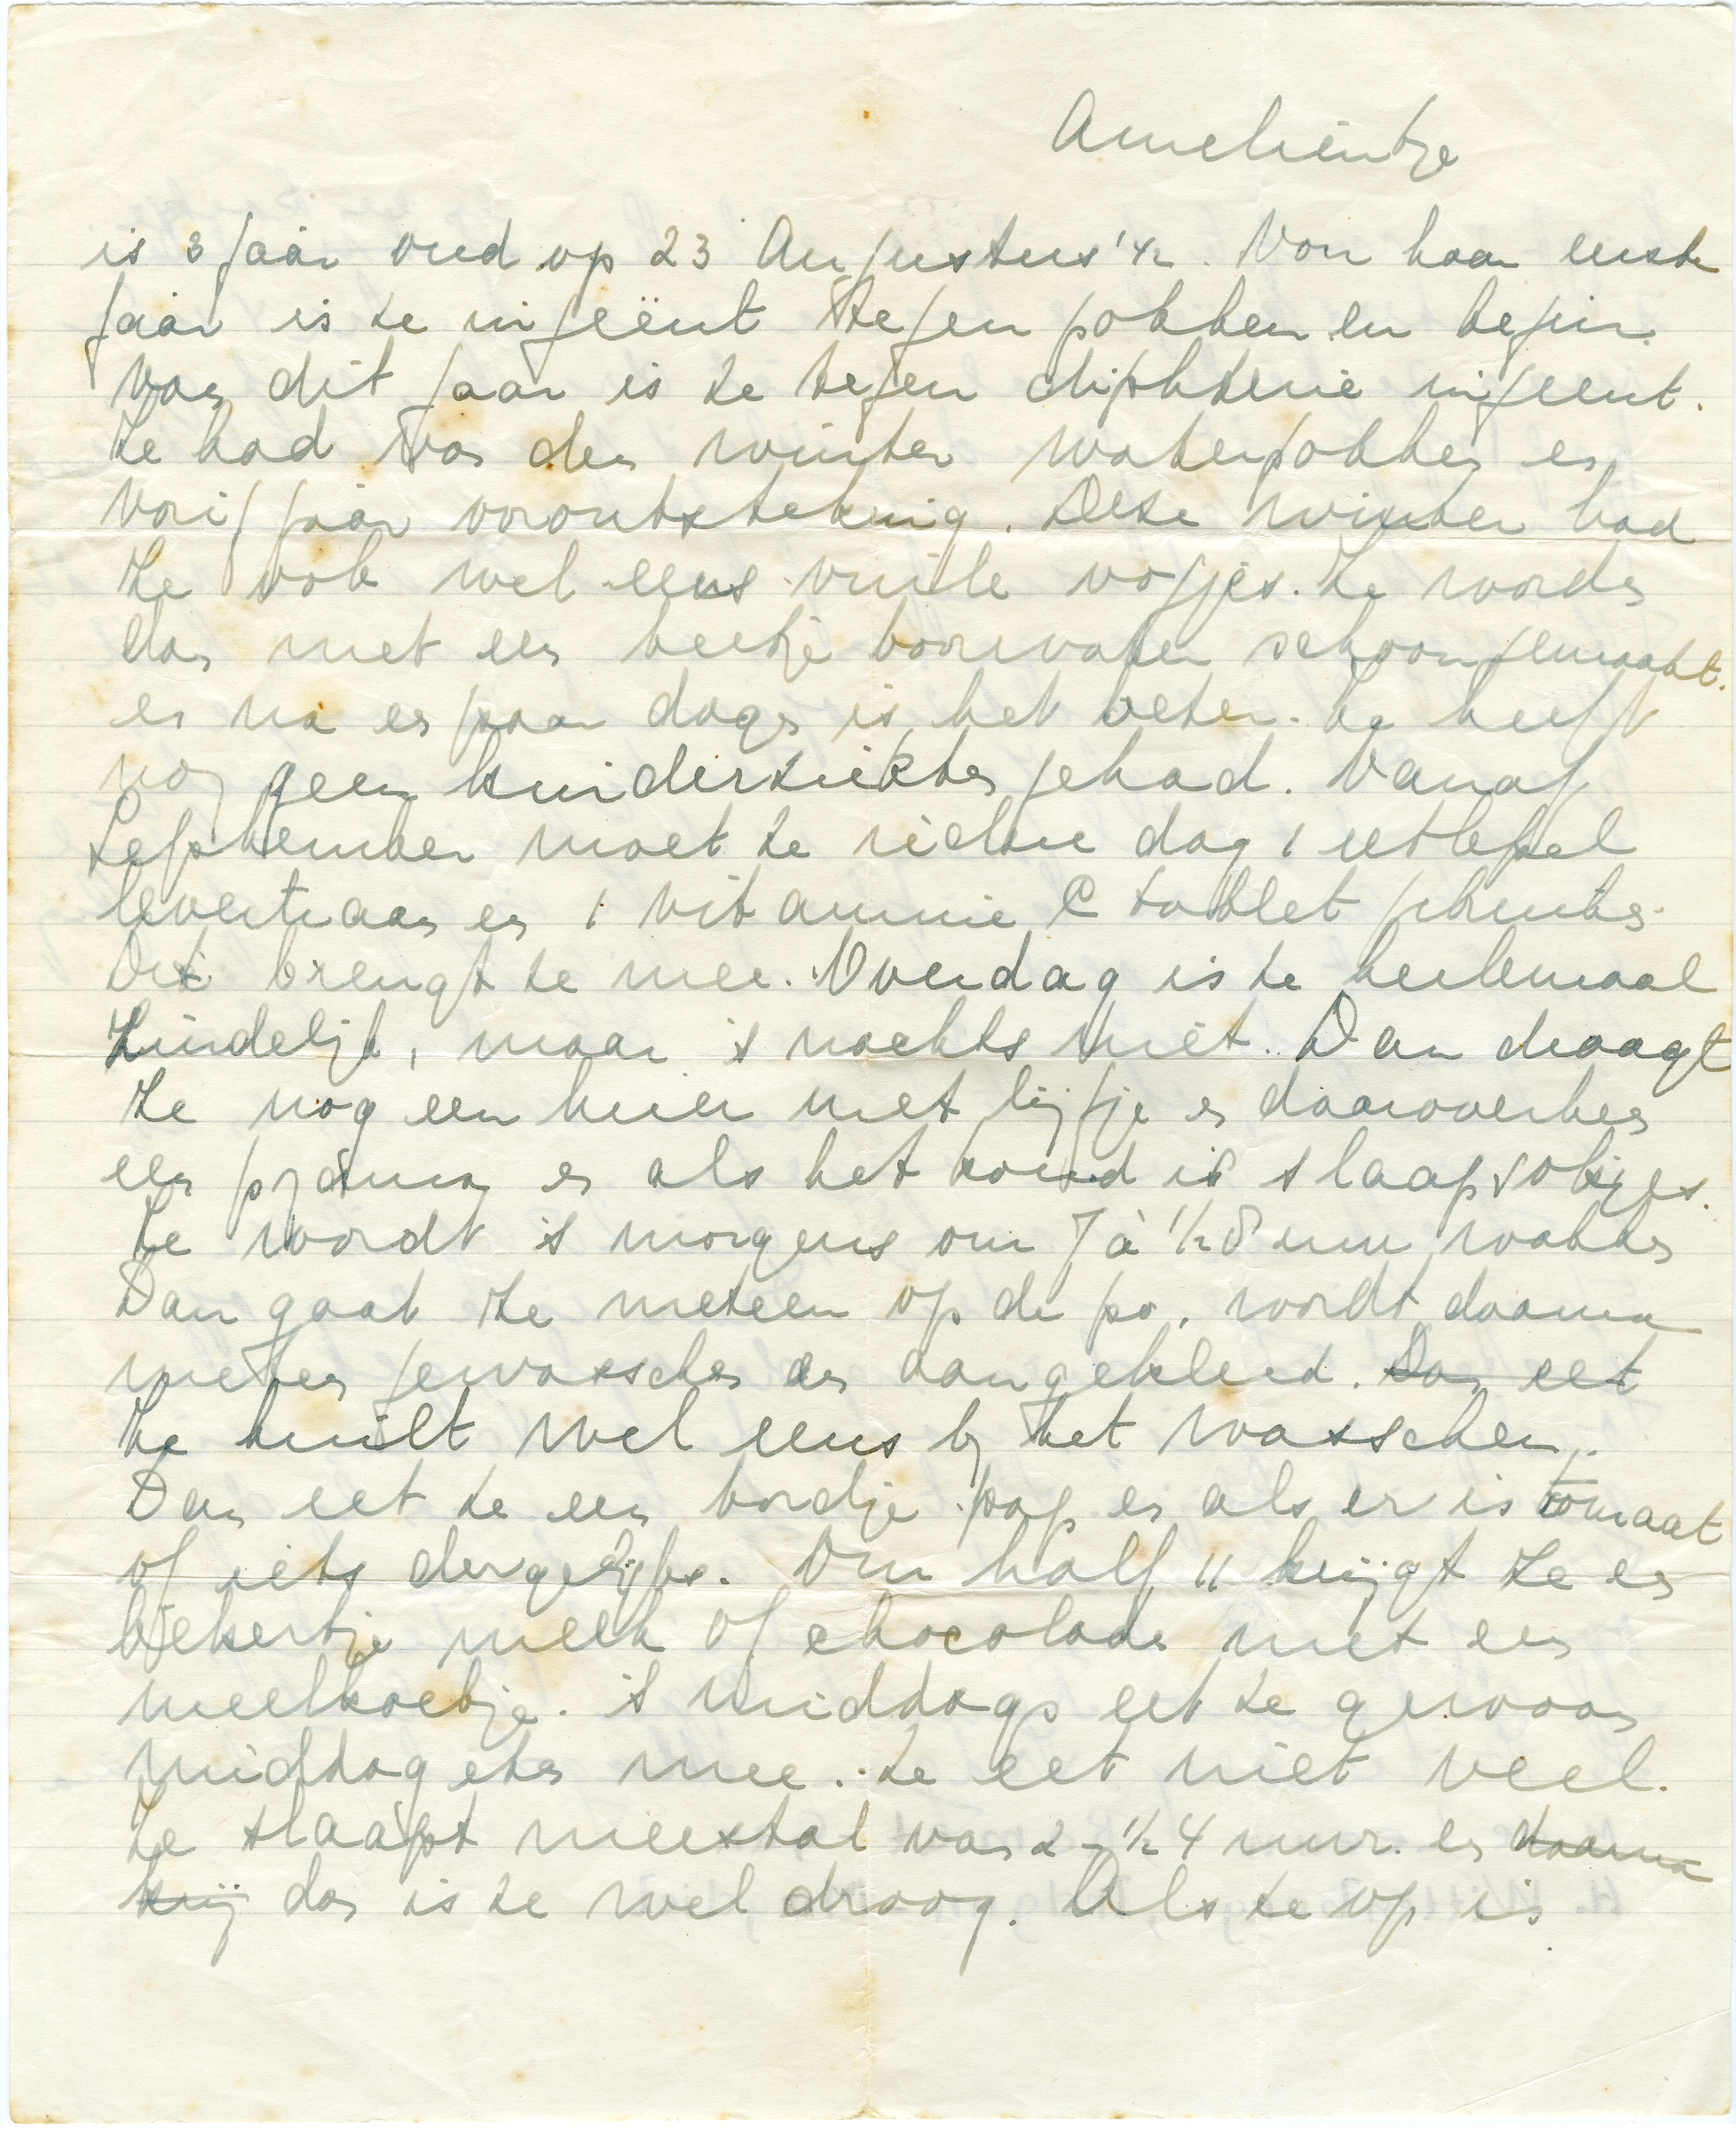 Amelientje
is 3 jaar oud op 23 Augustus '42. Voor haar eerste
jaar is ze ingeënt tegen pokken en begin
van dit jaar is ze tegen diphterie ingeent.
Ze had van den winter waterpokken en
vorig jaar oorontsteking. Deze winter had
ze ook wel eens vuile oogjes. Ze worden
dan met een beetje boorwater schoongemaakt.
en na en paar dagen is het beter. Ze heeft
nog geen kinderziektes gehad. Vanaf
September moet ze iedere dag 1 eetlepel
levertraan en 1 vitamine C tablet gebruiken.
Dit brengt ze mee. Overdag is ze heelemaal
zindelijk, maar 's nachts niet. Dan draagt
ze nog een luier met lijfje en daaroverheen
een pyama en als het koud is slaapsokjes.
Ze wordt 's morgens om 7 à ½ 8 uur wakker
Dan gaat ze meteen op de po, wordt daarna
meteen gewasschen en aangekleed. Dan eet
Ze huilt wel eens bij het wasschen.
Dan eet ze een bordje pap en als er is tomaat
of iets dergelijks. Om half 11 krijgt ze en
bekertje melk of chocolade met een
meelkoekje. 's Middags eet ze gewoon
middageten mee. Ze eet niet veel.
Ze slaapt meestal van 2 - ½ 4 uur. en daarna
krij dan is ze wel droog. Als ze op is